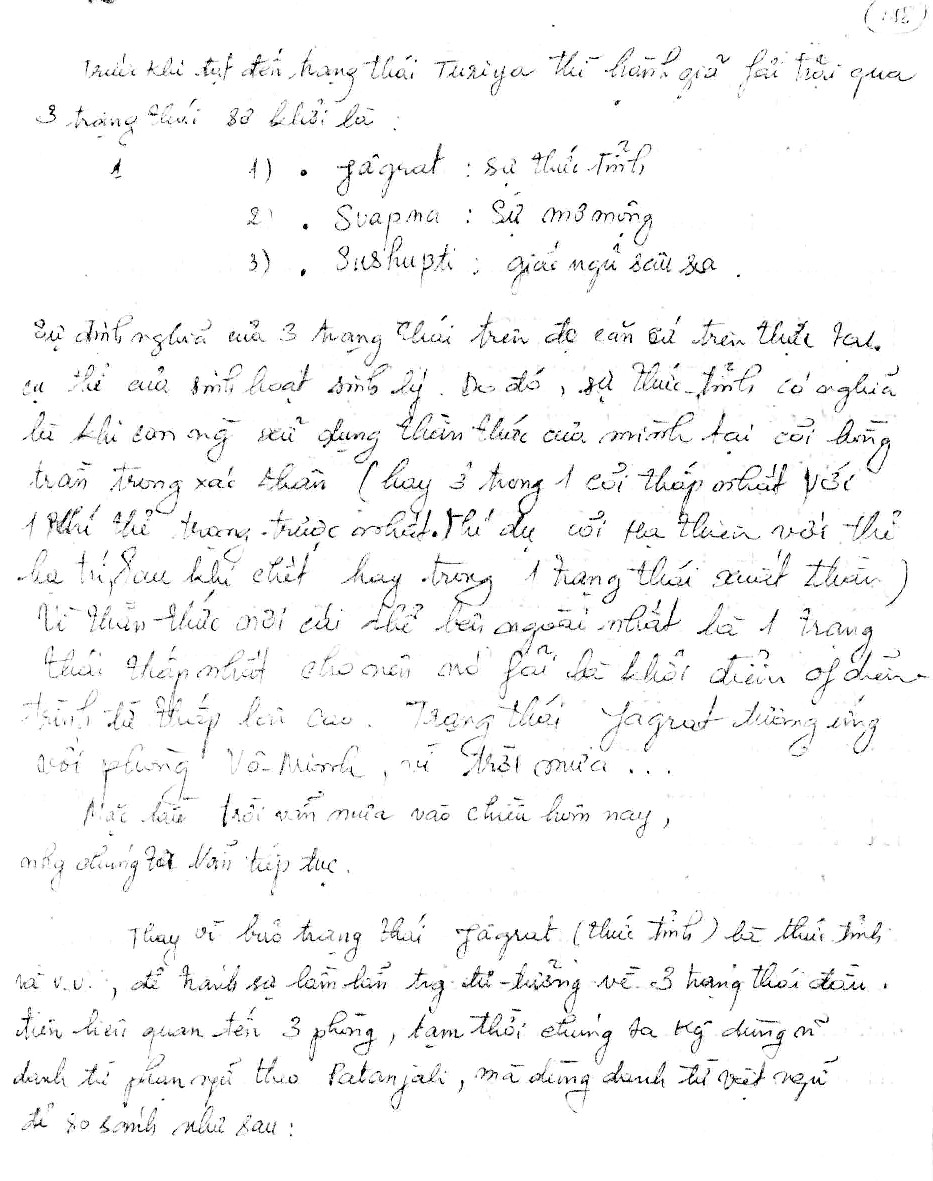 Trước khi đạt đến trạng thái Turiya thì hành giả fải trải qua
3 trạng thái sơ khởi là :
1 1) . Jâgrat : sự thức tỉnh
2) . Svapna : Sự mơ mộng
3) . Sushupti : giấc ngủ sâu xa .
Sự định nghĩa của 3 trạng thái trên đc căn cứ trên thực tại.
cụ thể của sinh hoạt sinh lý . Do đó , sự thức-tỉnh có nghĩa
là khi con ng̀ sử dụng thần thức của mình tại cõi hồng
trần trong xác thân ( hay ở trong 1 cõi thấp nhất với
1 thể trọng-trược nhất. Thí dụ cõi Hạ thiên với thể
hạ trí, sau khi chết hay trong 1 trạng thái xuất thần )
Vì thần-thức nơi cái thể bên ngoài nhất là 1 trạng
thái thấp nhất cho nên nó fải là khởi điểm of diễn-
trình từ thấp lên cao . Trạng thái Jagrat tương ứng
với phòng Vô-Minh , vì trời mưa ...
Mặc dầu trời vẫn mưa vào chiều hôm nay ,
nhg chúng ta vẫn tiếp tục .
Thay vì trạng thái Jâgrat (thức tỉnh) là thức tỉnh
và v.v. , để tránh sự lầm lẫn trg tư-tưởng về 3 trạng thái đầu .
tiên liên quan đến 3 phòng , tạm thời chúng ta kg dùng
danh từ phạn ngữ theo Patanjali , mà dùng danh từ việt ngữ
để so sánh như sau :